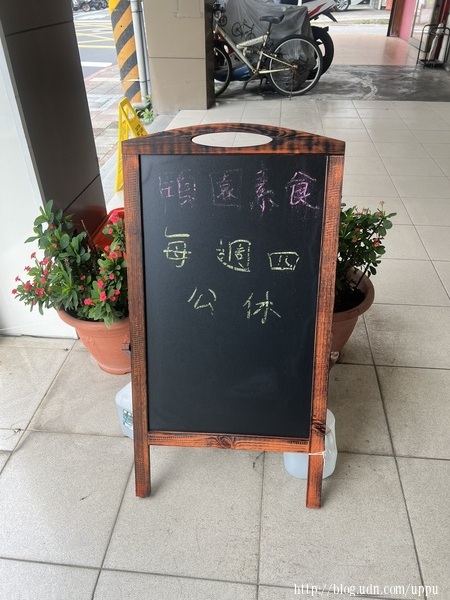 園素食
每週四
公休
http://blog.udn.com/uppu